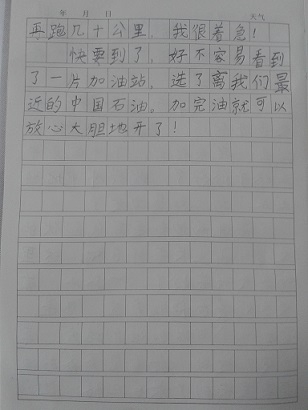 年 月 日 天气
再跑几十公里。我很着急!
快要到了,好不容易看到
了一片加油站,选了离我们最
近的中国石油。加完油就可以
放心大胆地开了!